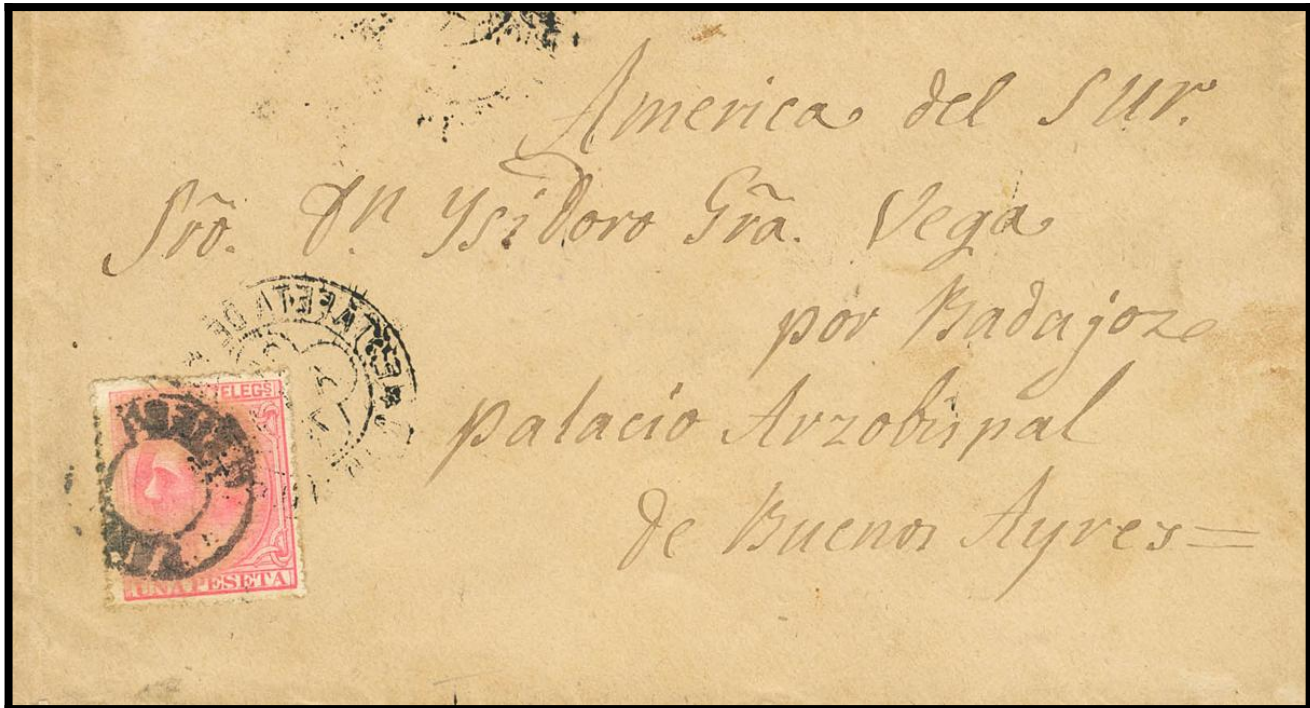 America del Sur.
Srõ. Dn Ysidoro Grã. Vega
por Badajoz
palacio Arzobispal
de Buenos Ayres=
ESTAFETA DE
TELEGS
UNA PESETA